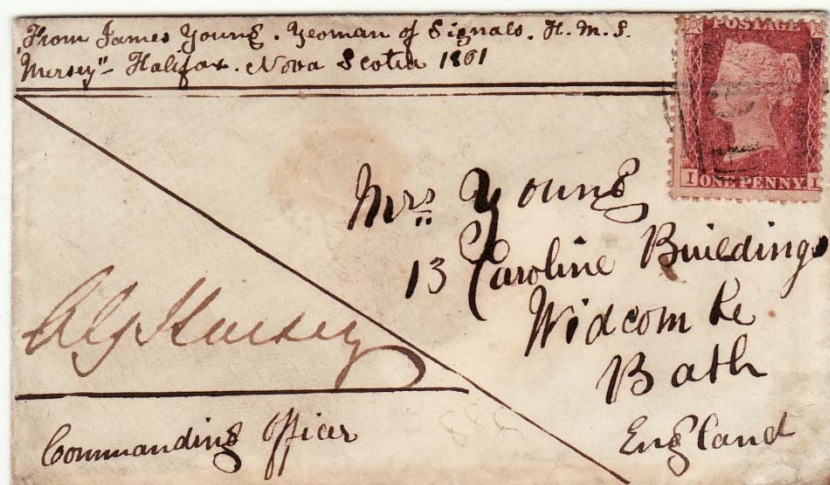 From James Young. Yeoman of Signals. H. M. S.
"Mersey" - Halifax. Nova Scotia 1861
POSTAGE
I ONE PENNY I
Mrs Young
13 Caroline Buildings
Widcombe
Bath
England
Commanding Officer